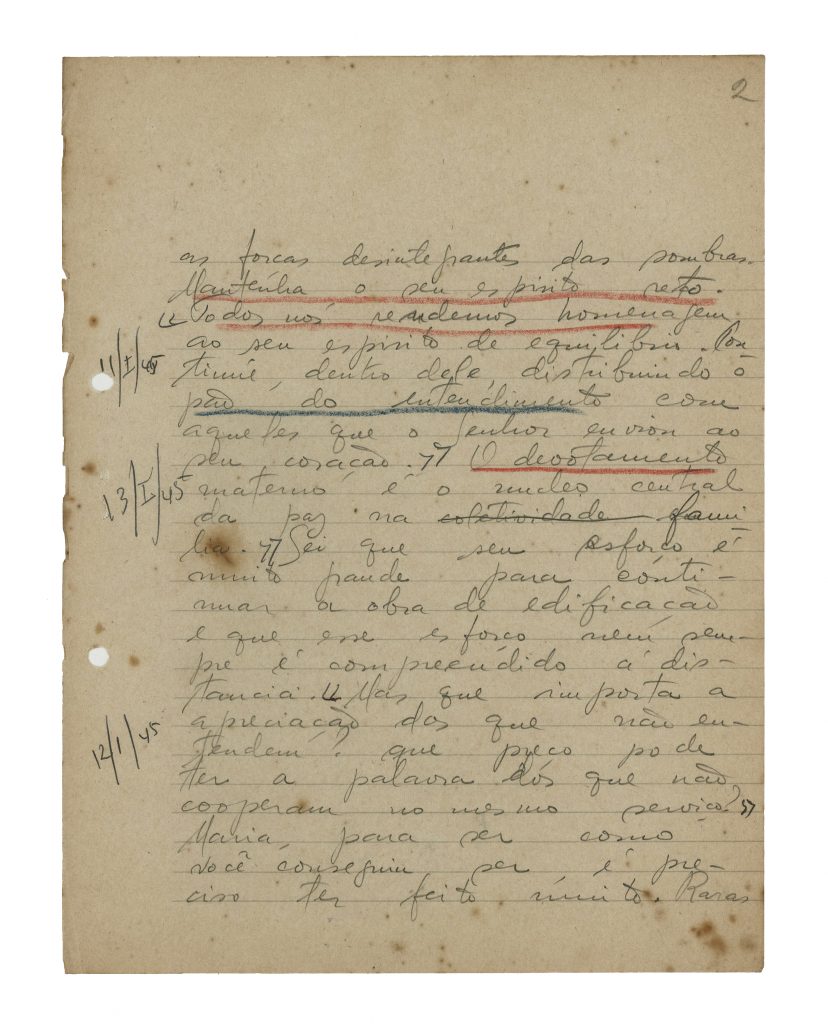 2
as forcas desintegrantes das sombras.
Mantenha o seu espirito reto.
"Todos nós rendemos homenagem
ao seu espirito de equilibrio. Con-
11/I/45
tinue, dentro dele, distribuindo o
pão do entendimento com
aqueles que o Senhor enviou ao
seu coração." O devotamento
13/I/45
materno é o nucleo central
da paz na coletividade fami
lia." Sei que seu esforço é
muito grande para conti-
nuar a obra de edificação
e que esse esforco nem sem-
pre é compreendido á dis-
tancia. "Mas que importa a
apreciação dos que não en-
12/1/45
tendem? que preço pode
ter a palavra dos que não
cooperam no mesmo serviço?"
Maria, para ser como
você conseguiu ser é pre-
ciso ter feito muito. Raras